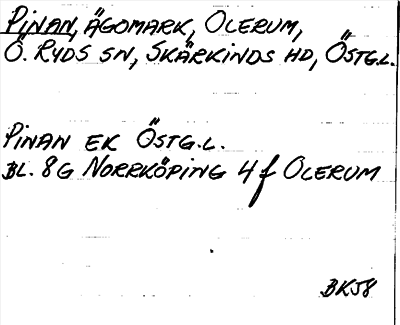 Pinan, ägomark, Olerum,
Ö. Ryds sn, Skärkinds hd, Östg.l.
Pinan ek Östg.l.
Bl. 8G Norrköping 4f Olerum
BK58